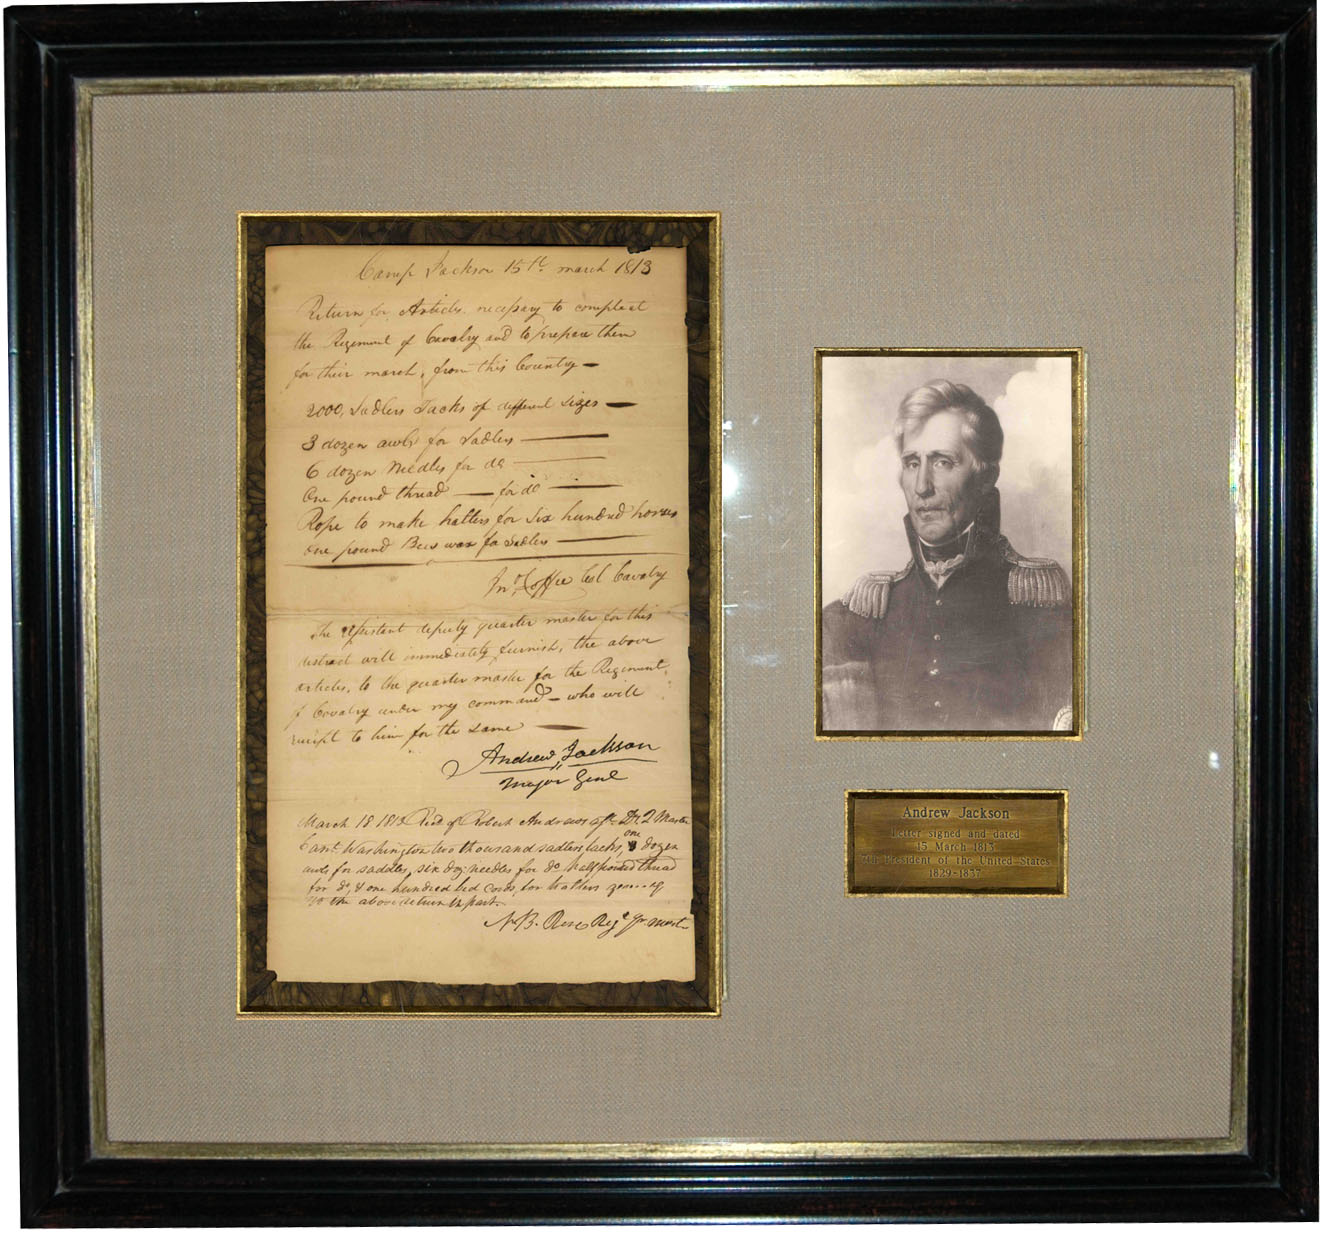 Camp Jackson 15th march 1813
Return for Articles necessary to compleat
the Regiment of Cavalry and to prepare them
for their march, from this Country —
2000, Sadlers Tacks of different sizes —
3 dozen awls for Sadlers —
6 dozen Needles for do —
One pound thread — for do —
Rope to make halters for Six hundred horses
one pound Bees wax for Sadlers —
Jno. Coffee Col. Cavalry
The assistant deputy quarter master for this
district will immediately furnish, the above
articles, to the quarter master for the Regiment
of Cavalry under my command — who will
receipt to him for the same —
Andrew Jackson
Major Genl
March 18 1813 Recd of Robert Andrews Master
Camp Washington two thousand sadlers tacks, one dozen
awls for saddles, six doz needles for do half pound thread
for do, & one hundred bed cords, for halters
to the above return in part.
N. B. Rose Regl Qr. mast.
Andrew Jackson
Letter signed and dated
15 March 1813
7th President of the United States
1829-1837